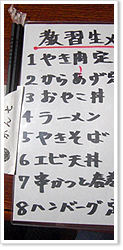 教習生メ
1 やき肉定
2 からあげ定
3 おやこ丼
4 ラーメン
5 やきそば
6 エビ天丼
7 串かつと春巻
8 ハンバーグ定
かんむ